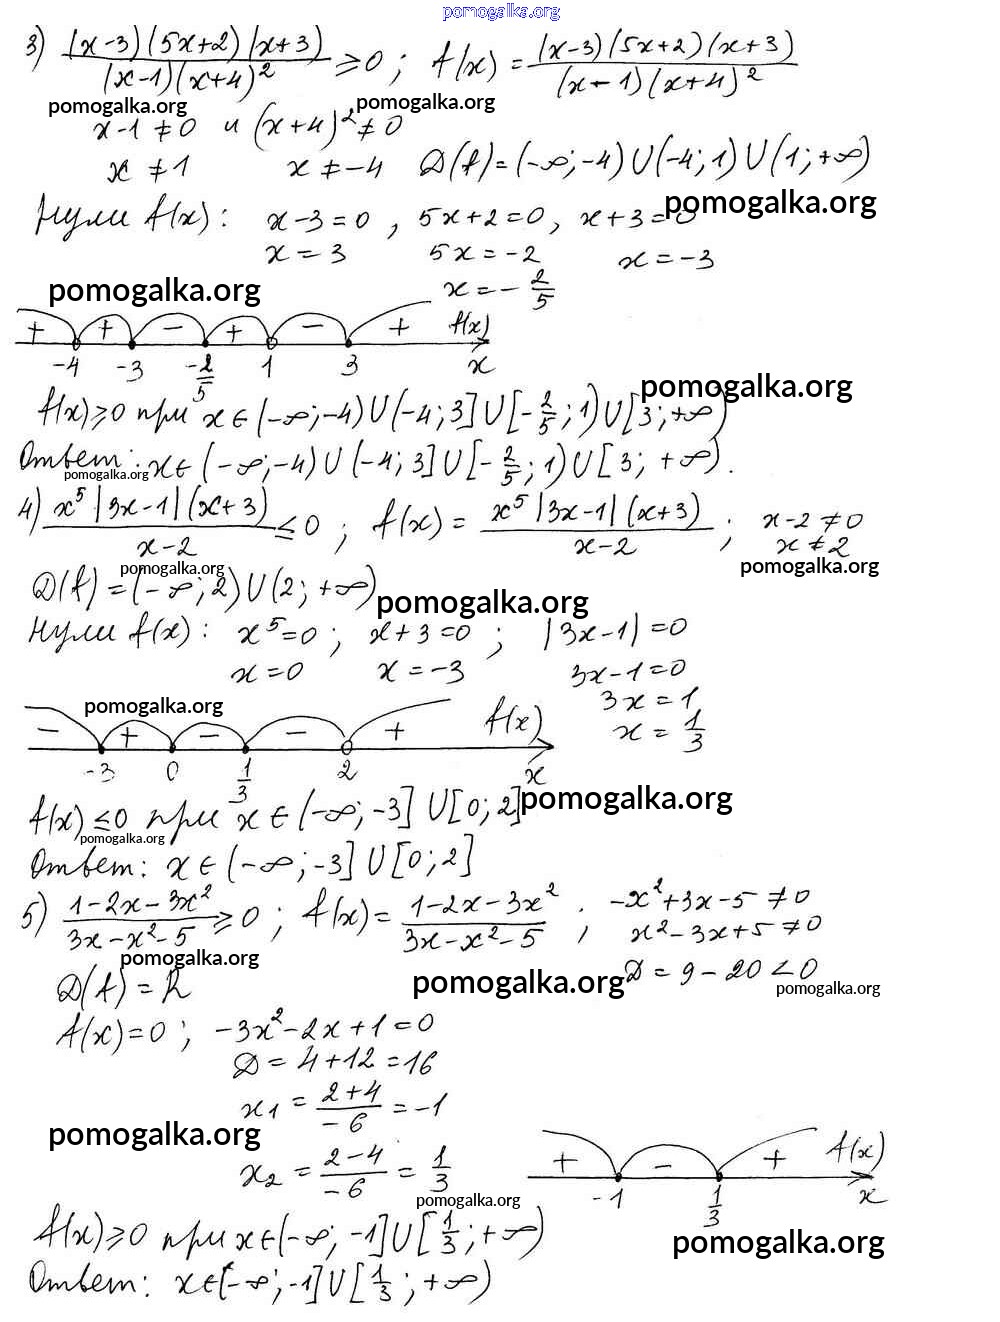 pomogalka.org
3) (x-3)(5x+2)(x+3) / (x-1)(x+4)² ≥ 0 ; f(x) = (x-3)(5x+2)(x+3) / (x-1)(x+4)²
pomogalka.org pomogalka.org
x-1≠0 и (x+4)²≠0
x ≠ 1 x ≠ -4 D(f)=(-∞;-4)∪(-4;1)∪(1;+∞)
Нули f(x): x-3=0, 5x+2=0, x+3=0 pomogalka.org
x=3 5x=-2 x=-3
pomogalka.org x=-2/5
+ + - + - + f(x)
-4 -3 -2/5 1 3 x
pomogalka.org
f(x)≥0 при x∈(-∞;-4)∪(-4;3]∪[-2/5;1)∪[3;+∞)
Ответ: x∈(-∞;-4)∪(-4;3]∪[-2/5;1)∪[3;+∞).
pomogalka.org
4) x⁵|3x-1|(x+3) / x-2 ≤ 0 ; f(x) = x⁵|3x-1|(x+3) / x-2 ; x-2≠0
x≠2
pomogalka.org pomogalka.org
D(f)=(-∞;2)∪(2;+∞)
pomogalka.org
Нули f(x): x⁵=0; x+3=0; |3x-1|=0
x=0 x=-3 3x-1=0
3x=1
x=1/3
pomogalka.org
- + - - + f(x)
-3 0 1/3 2 x
f(x)≤0 при x∈(-∞;-3]∪[0;2] pomogalka.org
pomogalka.org
Ответ: x∈(-∞;-3]∪[0;2]
5) 1-2x-3x² / 3x-x²-5 ≥ 0 ; f(x) = 1-2x-3x² / 3x-x²-5 ; -x²+3x-5≠0
x²-3x+5≠0
pomogalka.org
D=9-20<0
D(f)=R pomogalka.org pomogalka.org
f(x)=0; -3x²-2x+1=0
D=4+12=16
x₁ = 2+4 / -6 = -1
pomogalka.org
x₂ = 2-4 / -6 = 1/3
+ - + f(x)
-1 1/3 x
pomogalka.org
f(x)≥0 при x∈(-∞;-1]∪[1/3;+∞)
pomogalka.org
Ответ: x∈(-∞;-1]∪[1/3;+∞)